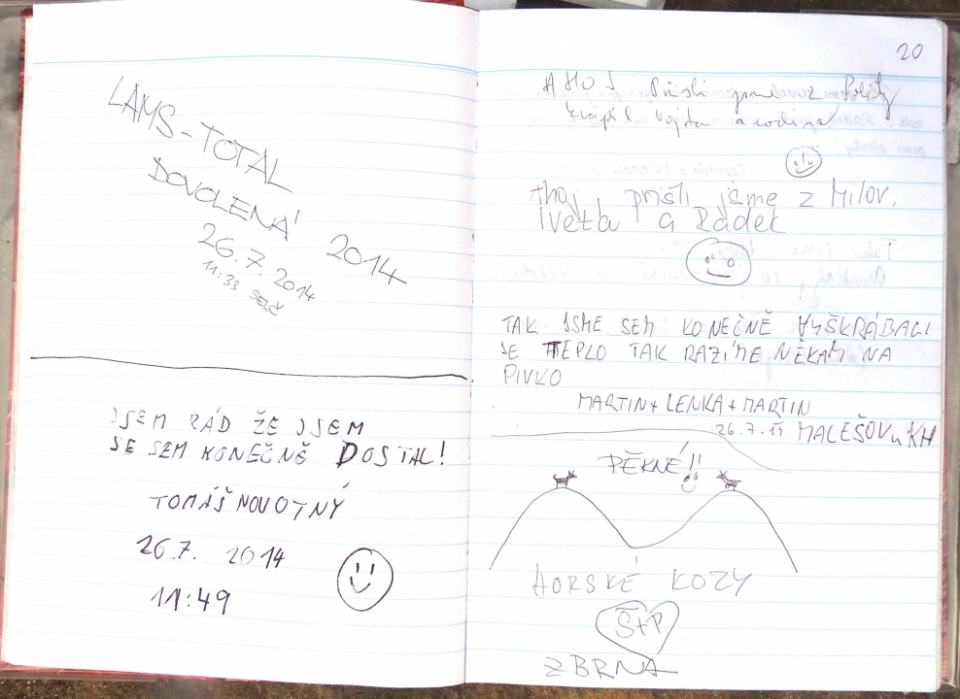 LAMS-TOTAL
DOVOLENÁ! 2014
26.7.2014
11:33 SELČ
JSEM RÁD ŽE JSEM
SE SEM KONEČNĚ DOSTAL!
TOMÁŠ NOVOTNÝ
26.7. 2014
11:49
20
AHOJ Přišli jsme z
Vojta a rodina
Ahoj přišli jsme z Milov.
Iveta a Radek
TAK JSME SEM KONEČNĚ VYŠKRÁBALI
JE TEPLO TAK RAZÍME NĚKAM NA
PIVKO
MARTIN + LENKA + MARTIN
26.7. MALEŠOV u KH
PĚKNÉ!!
HORSKÉ KOZY
Š+P
Z BRNA